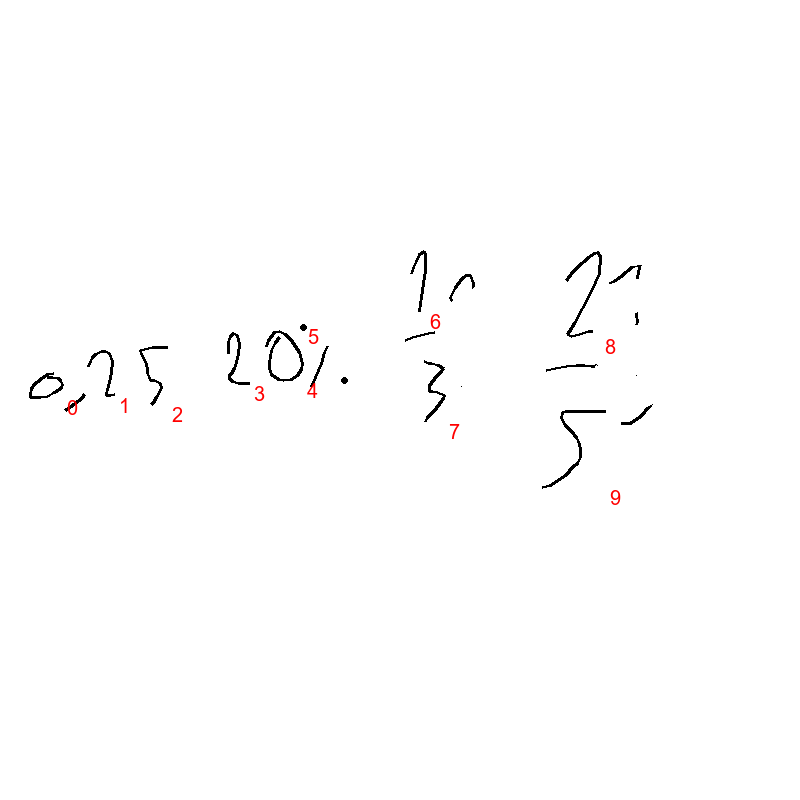 0,25 20% 1/3 2/5
0 1 2 3 4 5 6 7 8 9